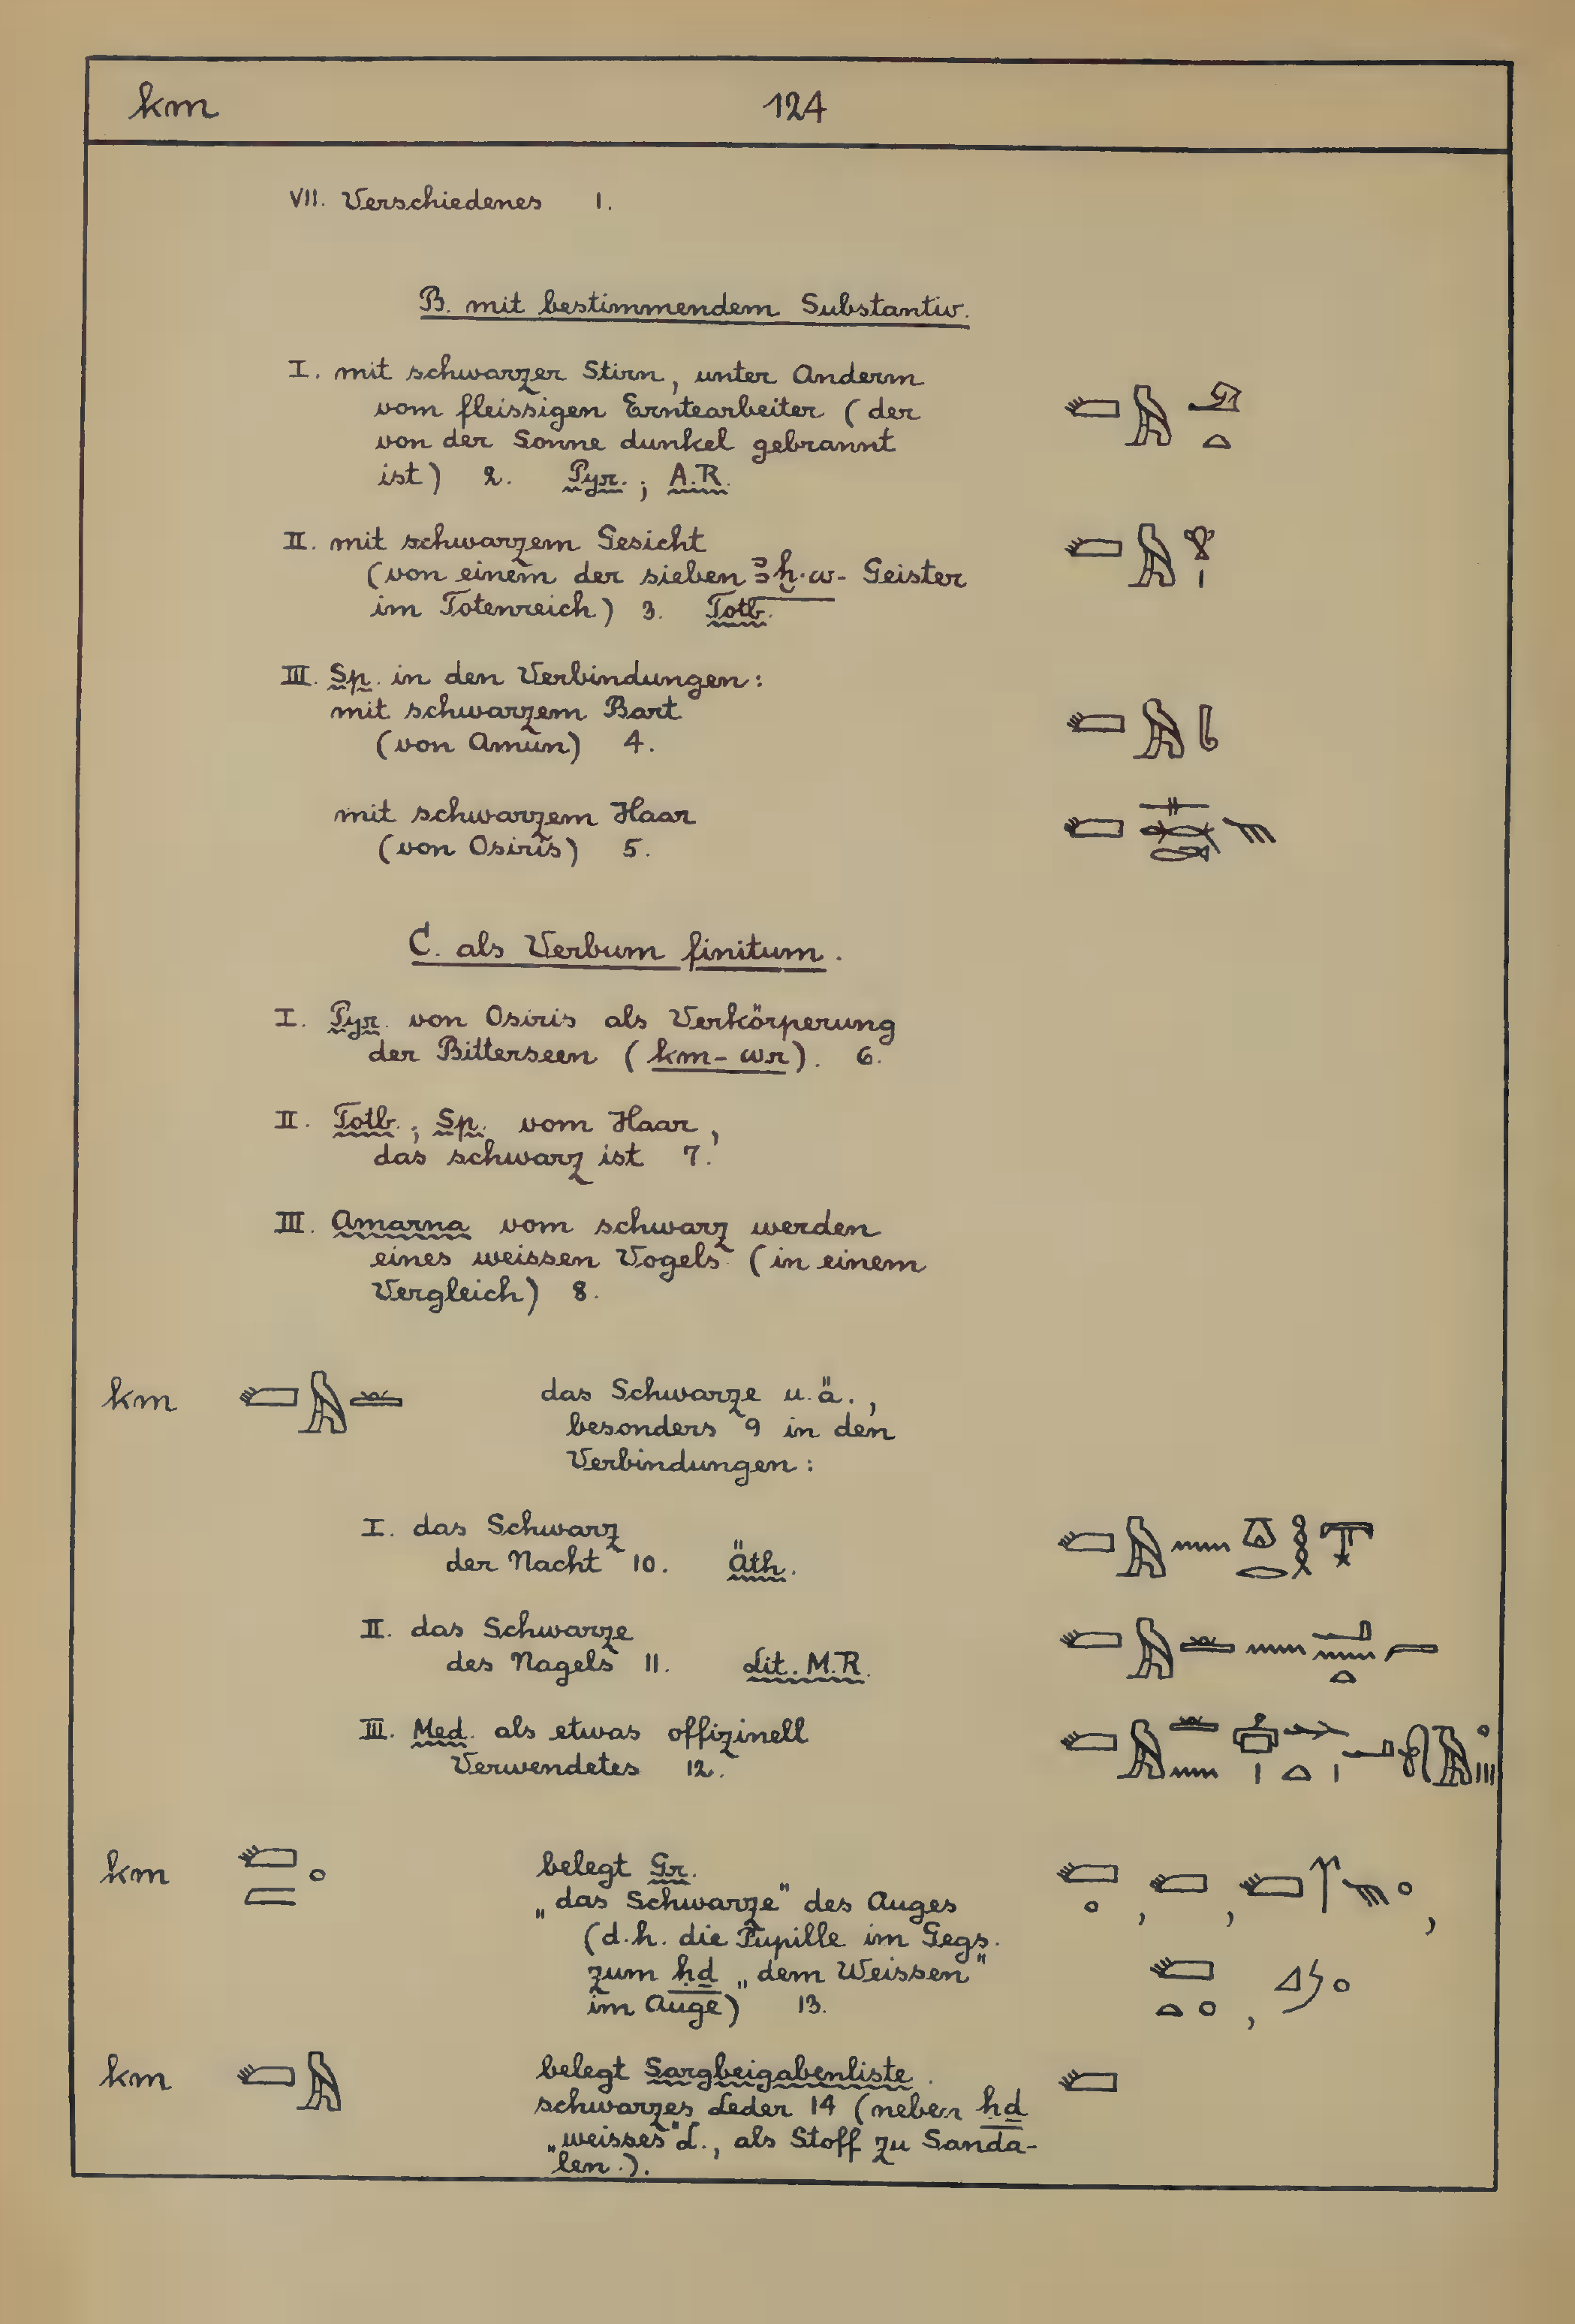 km 124
VII. Verschiedenes 1.
B. mit bestimmendem Substantiv.
I. mit schwarzer Stirn, unter Anderm
vom fleissigen Erntearbeiter (der
von der Sonne dunkel gebrannt
ist) 2. Pyr.; A.R.
II. mit schwarzem Gesicht
(von einem der sieben ꜣḫ·w- Geister
im Totenreich) 3. Totb.
III. Sp. in den Verbindungen:
mit schwarzem Bart
(von Amun) 4.
mit schwarzem Haar
(von Osiris) 5.
C. als Verbum finitum.
I. Pyr. von Osiris als Verkörperung
der Bitterseen (km-wr). 6.
II. Totb.; Sp. vom Haar,
das schwarz ist 7.
III. Amarna vom schwarz werden
eines weissen Vogels (in einem
Vergleich) 8.
km das Schwarze u. ä.,
besonders 9 in den
Verbindungen:
I. das Schwarz
der Nacht 10. Äth.
II. das Schwarze
des Nagels 11. Lit. M.R.
III. Med. als etwas offizinell
Verwendetes 12.
km belegt Gr.
„das Schwarze" des Auges
(d.h. die Pupille im Gegs.
zum ḥḏ „dem Weissen"
im Auge) 13.
km belegt Sargbeigabenliste.
schwarzes Leder 14 (neben ḥḏ
„weisses" L., als Stoff zu Sanda-
len.).